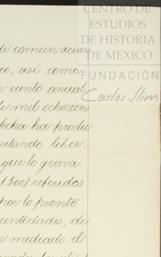 CENTRO DE
ESTUDIOS
DE HISTORIA
DE MEXICO
FUNDACIÓN
Carlos Slim
de comun acuer
so, asi como
canto anual
de mil ochocien
fecha ha produ
que lo grava
1500) referidos
por lo pronto
cantidades, de
mediado el